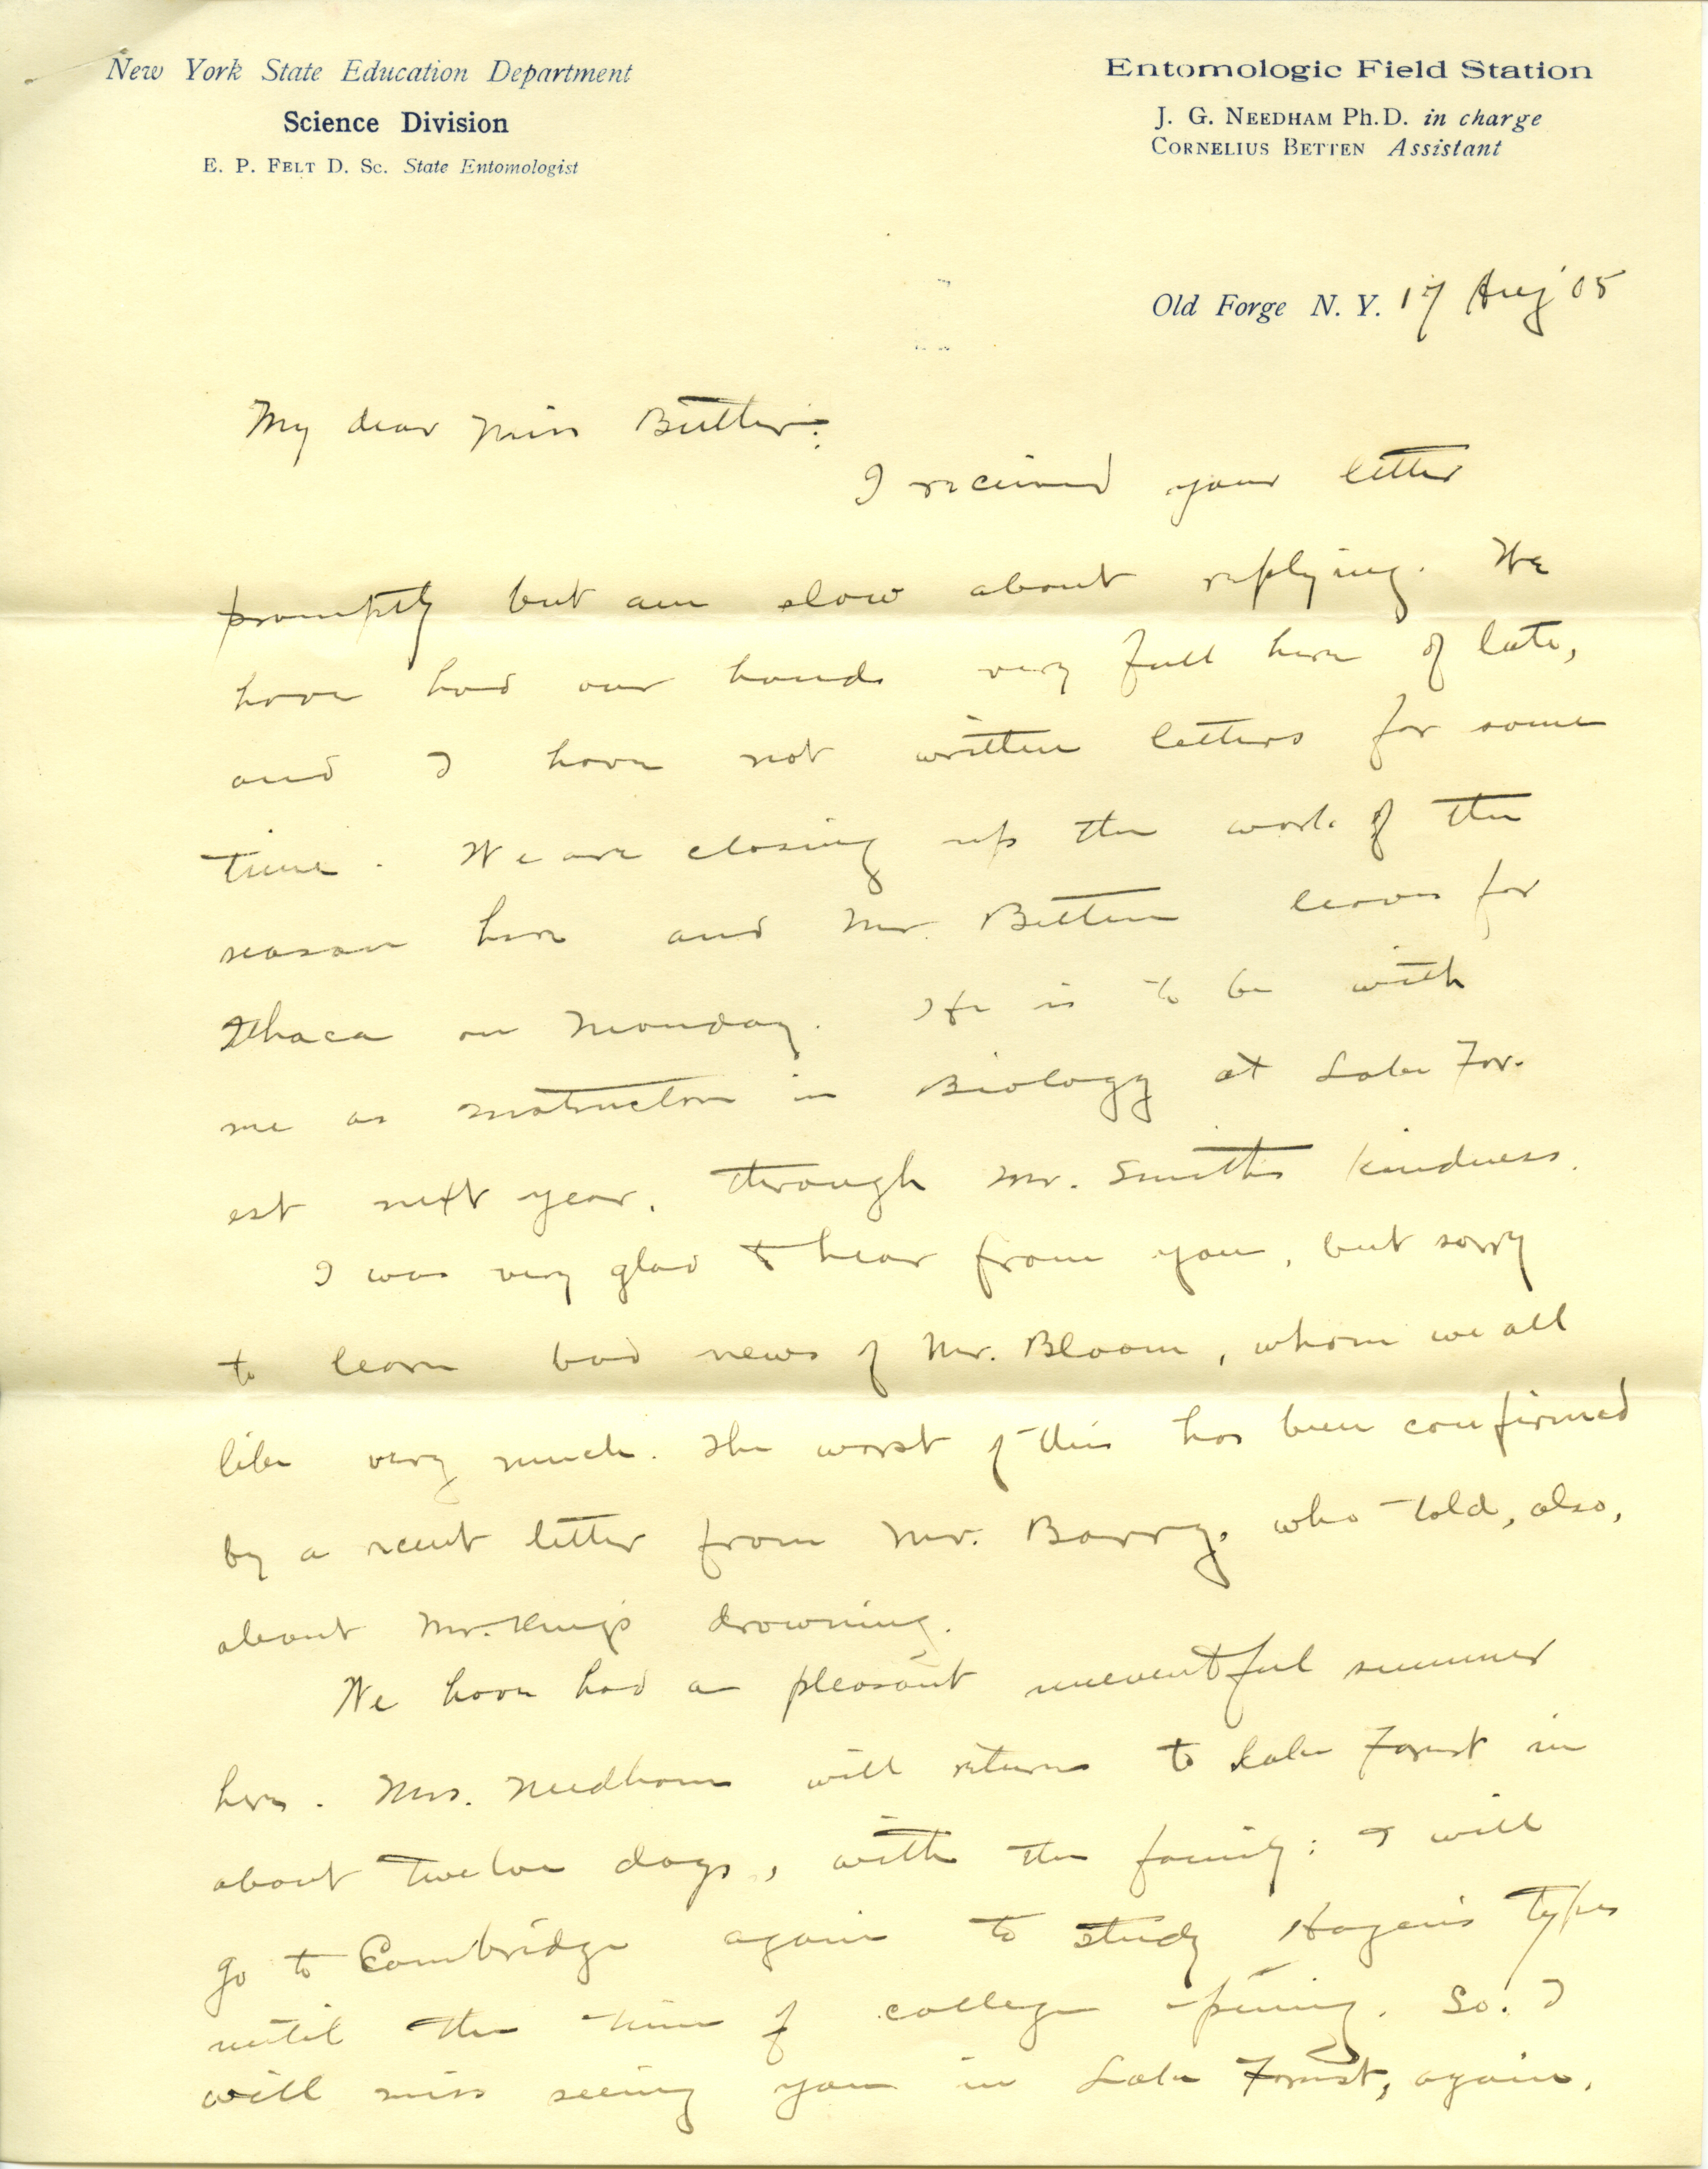 New York State Education Department
Science Division
E. P. FELT D. Sc. State Entomologist
Entomologic Field Station
J. G. NEEDHAM Ph.D. in charge
CORNELIUS BETTEN Assistant
Old Forge N. Y. 17 Aug '05
My dear Miss Butler:
I received your letter
promptly but am slow about replying. We
have had our hands very full here of late,
and I have not written letters for some
time. We are closing up the work of the
season here and Mr. Betten leaves for
Ithaca on Monday. He is to be with
me as instructor in Biology at Lake For-
est next year, through Mr. Smith's kindness.
I was very glad to hear from you, but sorry
to learn bad news of Mr. Bloom, whom we all
like very much. The worst of this has been confirmed
by a recent letter from Mr. Barry, who told, also,
about Mr. King's drowning.
We have had a pleasant uneventful summer
here. Mrs. Needham will return to Lake Forest in
about twelve days, with the family: I will
go to Cambridge again to study Hagen's types
until the time of college opening. So. I
will miss seeing you in Lake Forest, again.